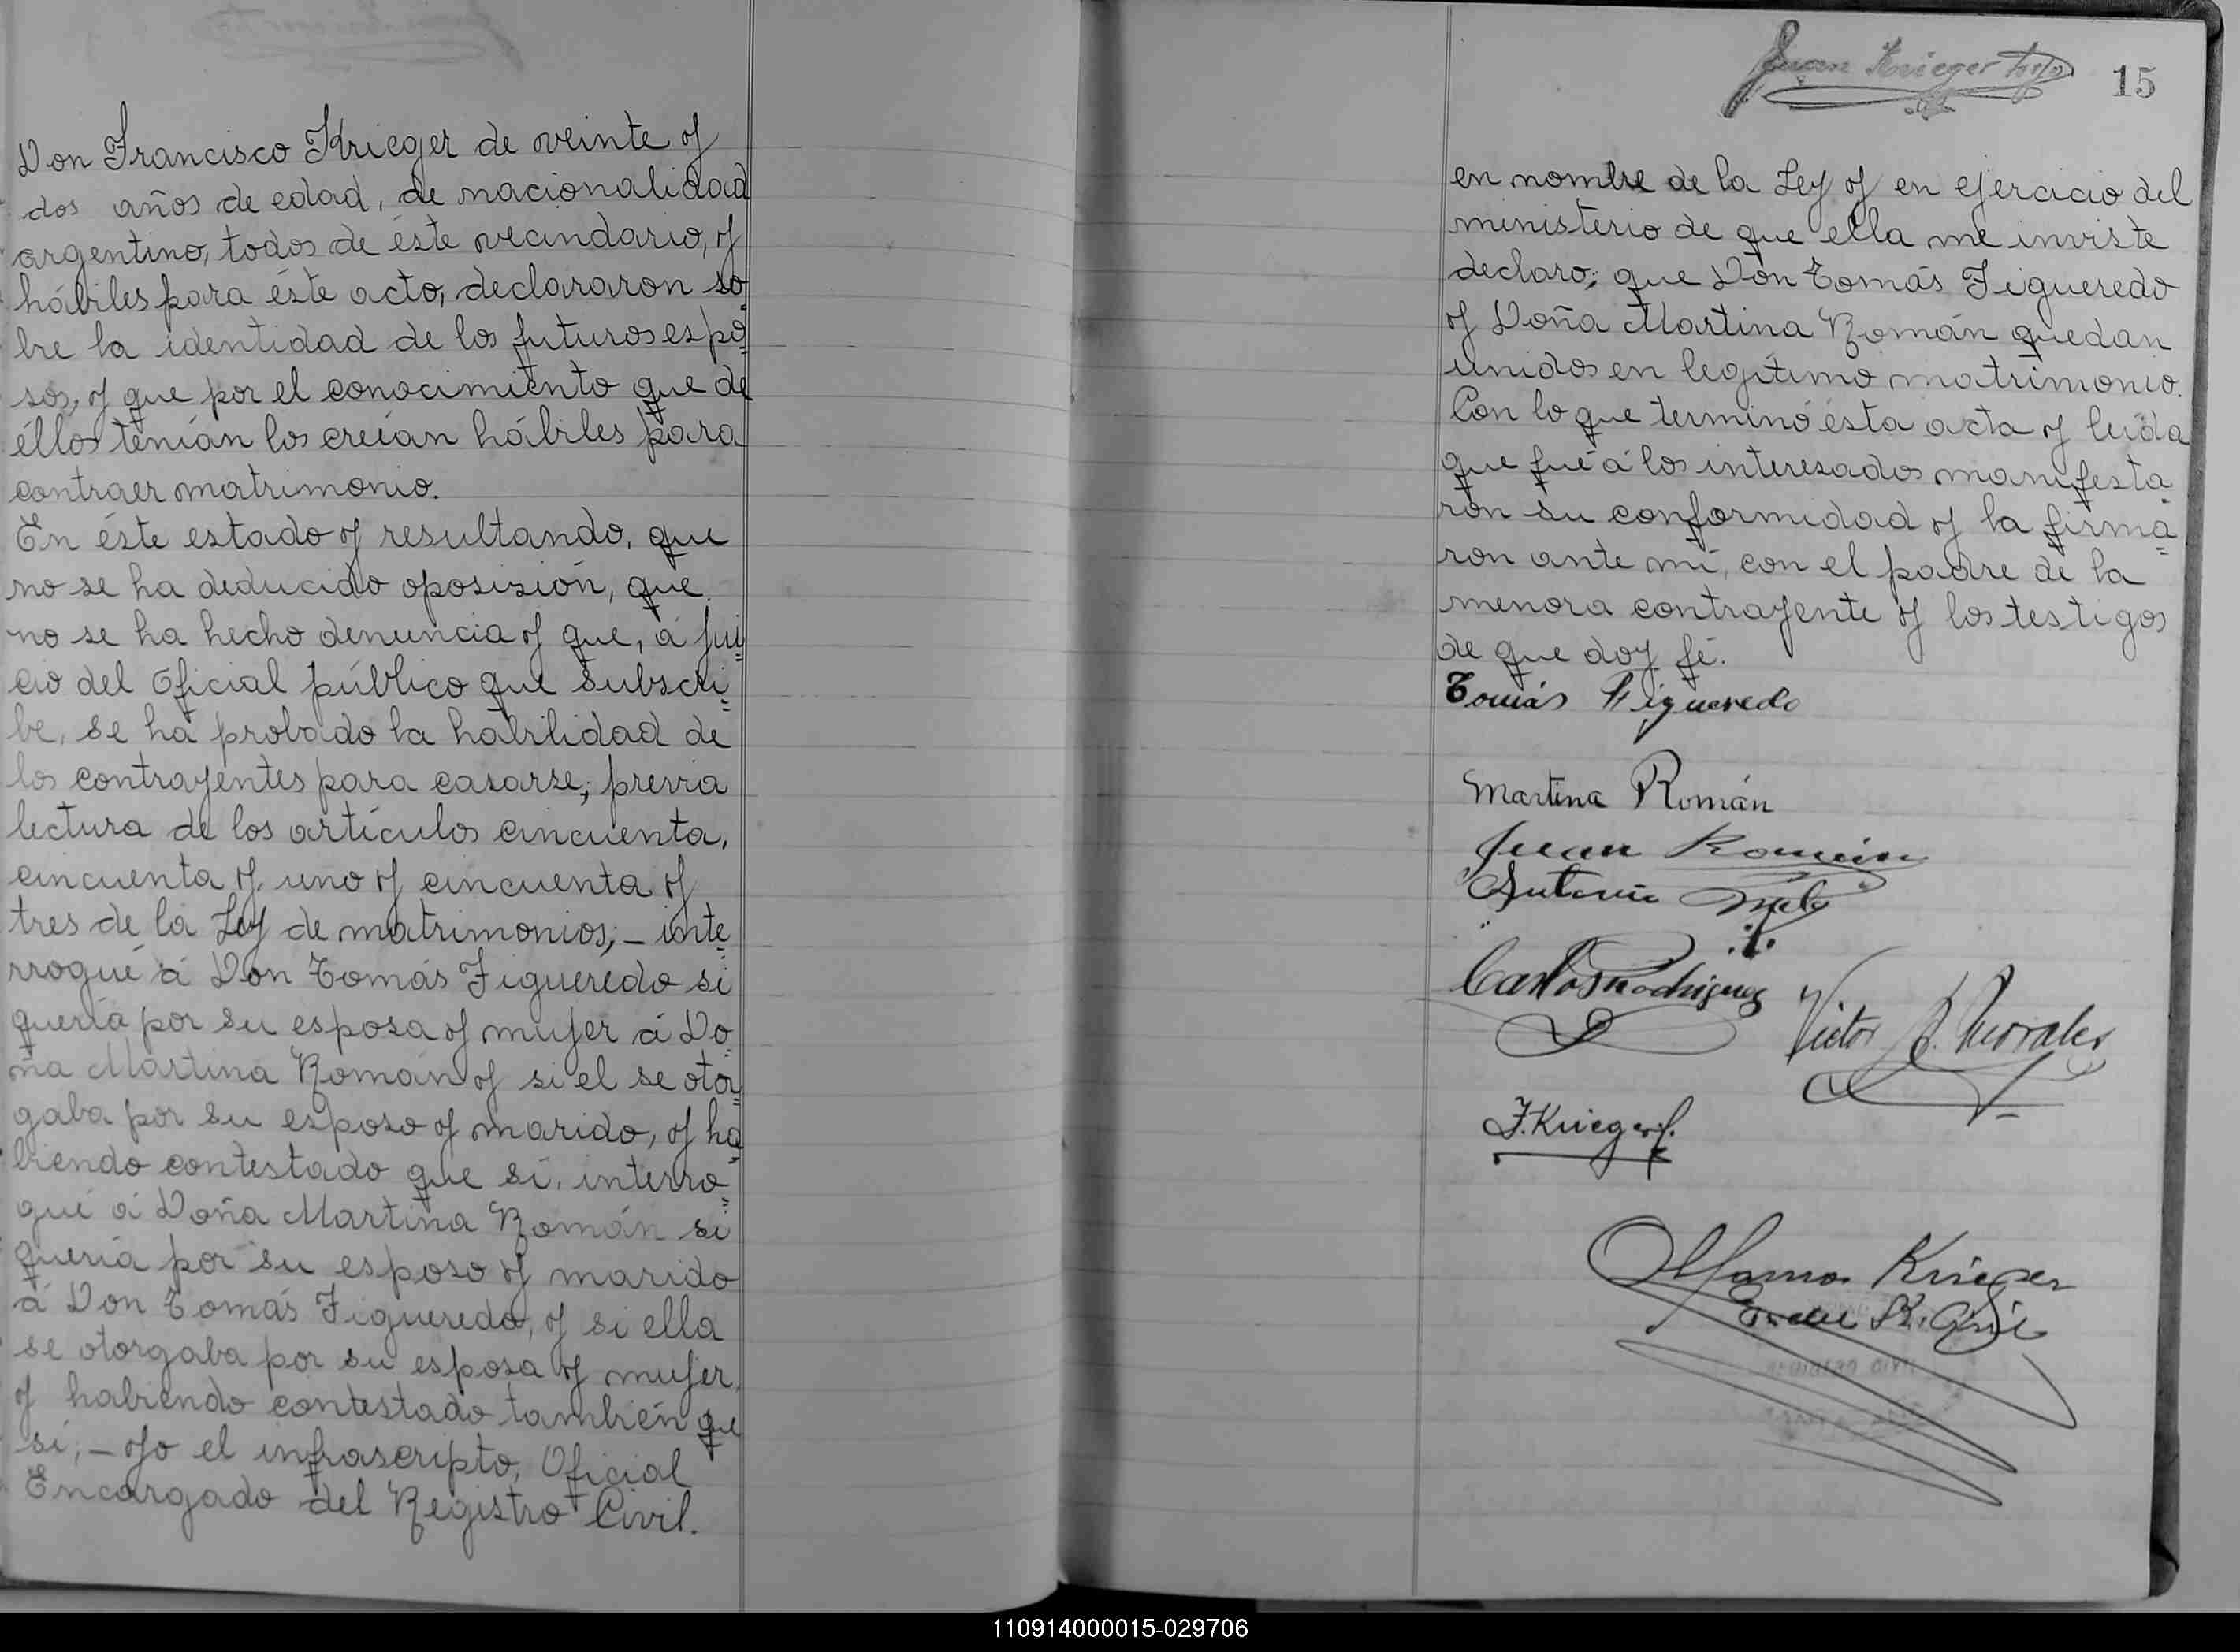 Don Francisco Krieger de veinte y
dos años de edad, de nacionalidad
argentino, todos de éste vecindario, y
hábiles para éste acto, declararon so-
bre la identidad de los futuros espo-
sos, y que por el conocimiento que de
éllos tenían los creían hábiles para
contraer matrimonio.
En éste estado y resultando, que
no se ha deducido oposisión, que
no se ha hecho denuncia y que, á jui=
cio del Oficial público que subscri=
be, se ha probado la habilidad de
los contrayentes para casarse; previa
lectura de los artículos cincuenta,
cincuenta y uno y cincuenta y
tres de la Ley de matrimonios; - inte=
rrogué á Don Tomás Figueredo si
quería por su esposa y mujer á Do=
ña Martina Román y si el se otor=
gaba por su esposo y marido, y ha=
biendo contestado que sí, interro=
gué á Doña Martina Román si
quería por su esposo y marido
á Don Tomás Figueredo, y si ella
se otorgaba por su esposa y mujer,
y habiendo contestado también que
sí; - yo el infrascripto, Oficial
Encargado del Registro Civil.
Juan Krieger hijo
15
en nombre de la Ley y en ejercicio del
ministerio de que ella me inviste
declaro; que Don Tomás Figueredo
y Doña Martina Román quedan
unidos en legítimo matrimonio.
Con lo que terminó ésta acta y leída
que fué á los interesados manifesta=
rón su conformidad y la firma=
ron ante mí, con el padre de la
menora contrayente y los testigos
de que doy fé.
Tomás Figueredo
Martina Román
Juan Román
Antonio
Carlos Rodriguez
Victor A. Morales
F. Krieger
Krieger
REGISTRO CIVIL
110914000015-029706